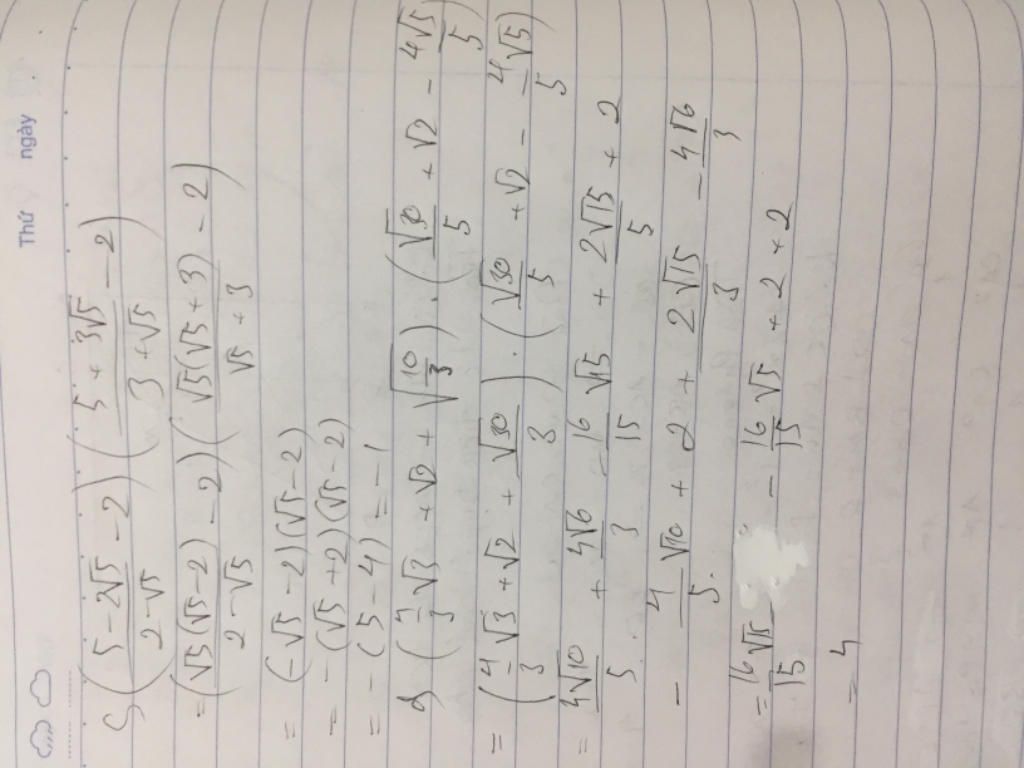 Thứ ngày
c) ((5 - 2√5)/(2 - √5) - 2)((5 + 3√5)/(3 + √5) - 2)
= ((√5(√5 - 2))/(2 - √5) - 2)((√5(√5 + 3))/(√5 + 3) - 2)
= (-√5 - 2)(√5 - 2)
= -(√5 + 2)(√5 - 2)
= -(5 - 4) = -1
d) (4/3 √3 + √2 + √(10/3)) . (√30/5 + √2 - 4√5/5)
= (4/3 √3 + √2 + √30/3) . (√30/5 + √2 - 4√5/5)
= 4√10/5 + 4√6/3 - 16/15 √15 + 2√15/5 + 2
- 4/5 √10 + 2 + 2√15/3 - 4√6/3
= 16√15/15 - 16/15 √5 + 2 + 2
= 4